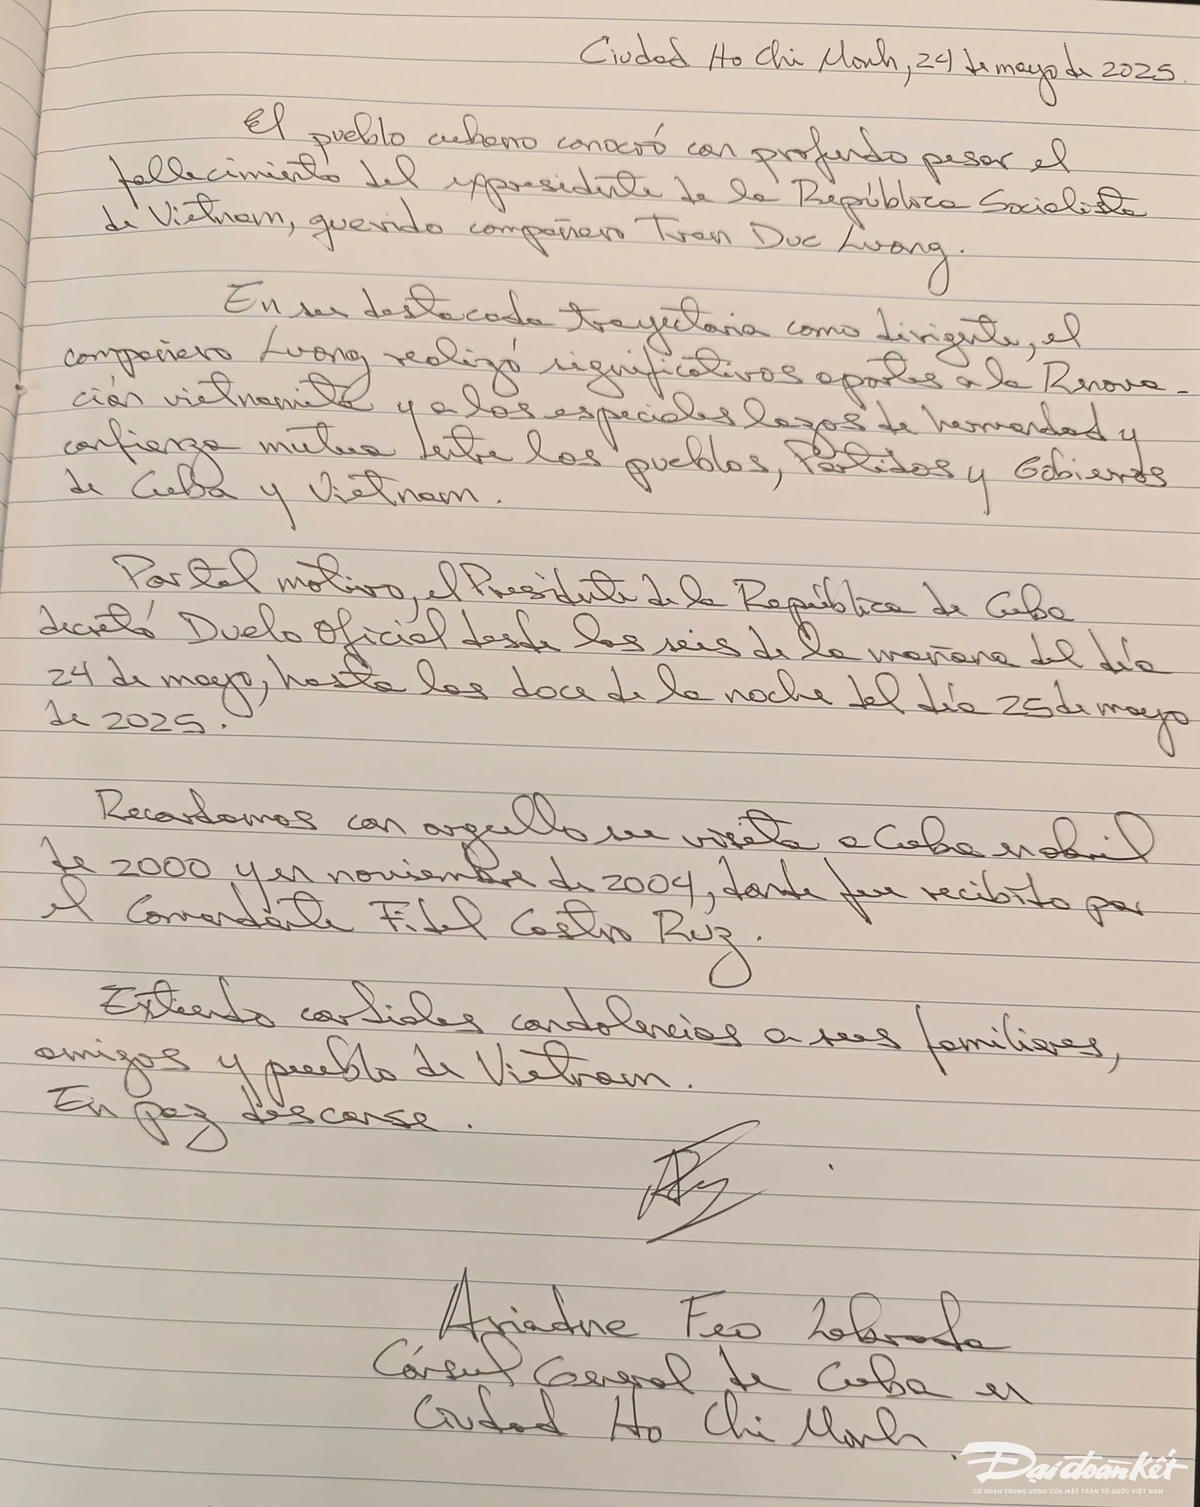 Ciudad Ho Chi Minh, 24 de mayo de 2025.
El pueblo cubano conoció con profundo pesar el
fallecimiento del expresidente de la República Socialista
de Vietnam, querido compañero Tran Duc Luong.
En su destacada trayectoria como dirigente, el
compañero Luong realizó significativos aportes a la Renova-
ción vietnamita y a los especiales lazos de hermandad y
confianza mutua entre los pueblos, Partidos y Gobiernos
de Cuba y Vietnam.
Por tal motivo, el Presidente de la República de Cuba
decretó Duelo Oficial desde las seis de la mañana del día
24 de mayo, hasta las doce de la noche del día 25 de mayo
de 2025.
Recordamos con orgullo su visita a Cuba en abril
de 2000 y en noviembre de 2004, donde fue recibido por
el Comandante Fidel Castro Ruz.
Extiendo cordiales condolencias a sus familiares,
amigos y pueblo de Vietnam.
En paz descanse.
Ariadne Feo Labrada
Cónsul General de Cuba en
Ciudad Ho Chi Minh.
Đại đoàn kết
CƠ QUAN TRUNG ƯƠNG CỦA MẶT TRẬN TỔ QUỐC VIỆT NAM